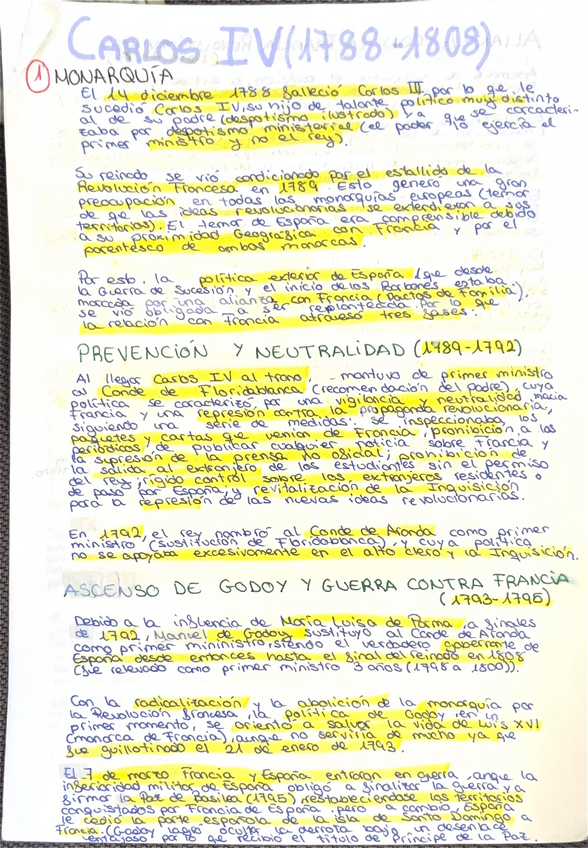 CARLOS IV (1788-1808)
1 MONARQUÍA
El 14 diciembre 1788 falleció Carlos III por lo que le
sucedió Carlos IV, su hijo de talante político muy distinto
al de su padre (despotismo ilustrado) ya que se caracteri-
zaba por despotismo ministerial (el poder lo ejercía el
primer ministro y no el rey).
Su reinado se vió condicionado por el estallido de la
Revolución Francesa en 1789. Esto generó una gran
preocupación en todas las monarquías europeas (temor
de que las ideas revolucionarias se extendieran a sus
territorios). El temor de España era comprensible debido
a su proximidad Geográfica con Francia y por el
parentesco de ambos monarcas.
Por esto, la política exterior de España (que desde
la Guerra de Sucesión y el inicio de los Borbones estaba
marcada por una alianza con Francia (Pactos de Familia),
se vió obligada a ser replanteada. Por lo que
la relación con Francia atravesó tres fases:
PREVENCIÓN Y NEUTRALIDAD (1789-1792)
Al llegar Carlos IV al trono, mantuvo de primer ministro
al Conde de Floridablanca (recomendación del padre), cuya
política se caracterizó por una vigilancia y neutralidad hacia
Francia y una represión contra la propaganda revolucionaria,
siguiendo una serie de medidas: se inspeccionaba los
paquetes y cartas que venían de Francia, prohibición a los
periódicos de publicar cualquier noticia sobre Francia y
la supresión de la prensa no oficial; prohibición de
la salida al extranjero de los estudiantes sin el permiso
del rey; rígido control sobre los extranjeros residentes o
de paso por España, y revitalización de la Inquisición
para la represión de las nuevas ideas revolucionarias.
En 1792, el rey nombró al Conde de Aranda como primer
ministro (sustitución de Floridablanca), y cuya política
no se apoyaba excesivamente en el alto clero y la Inquisición.
ASCENSO DE GODOY Y GUERRA CONTRA FRANCIA
(1793-1795)
Debido a la influencia de María Luisa de Parma, a finales
de 1792, Manuel de Godoy sustituyó al Conde de Aranda
como primer mininistro, siendo el verdadero gobernante de
España desde entonces hasta el final del reinado en 1808
(fue relevado como primer ministro 3 años (1798 a 1800)).
Con la radicalización y la abolición de la monarquía por
la Revolución francesa, la política de Godoy, en un
primer momento, se orientó a salvar la vida de Luis XVI
(monarca de Francia), aunque no serviría de mucho ya que
fue guillotinado el 21 de enero de 1793.
El 7 de marzo Francia y España entraron en guerra, anque la
inferioridad militar de España obligó a finalizar la guerra y a
firmar la Paz de Basilea (1795), restableciéndose los territorios
conquistados por Francia de España, pero a cambio, España
le cedió la parte española de la isla de Santo Domingo a
Francia. (Godoy logró ocultar la derrota bajo un desenlace
ventajoso por lo que recibió el título de Príncipe de la Paz.